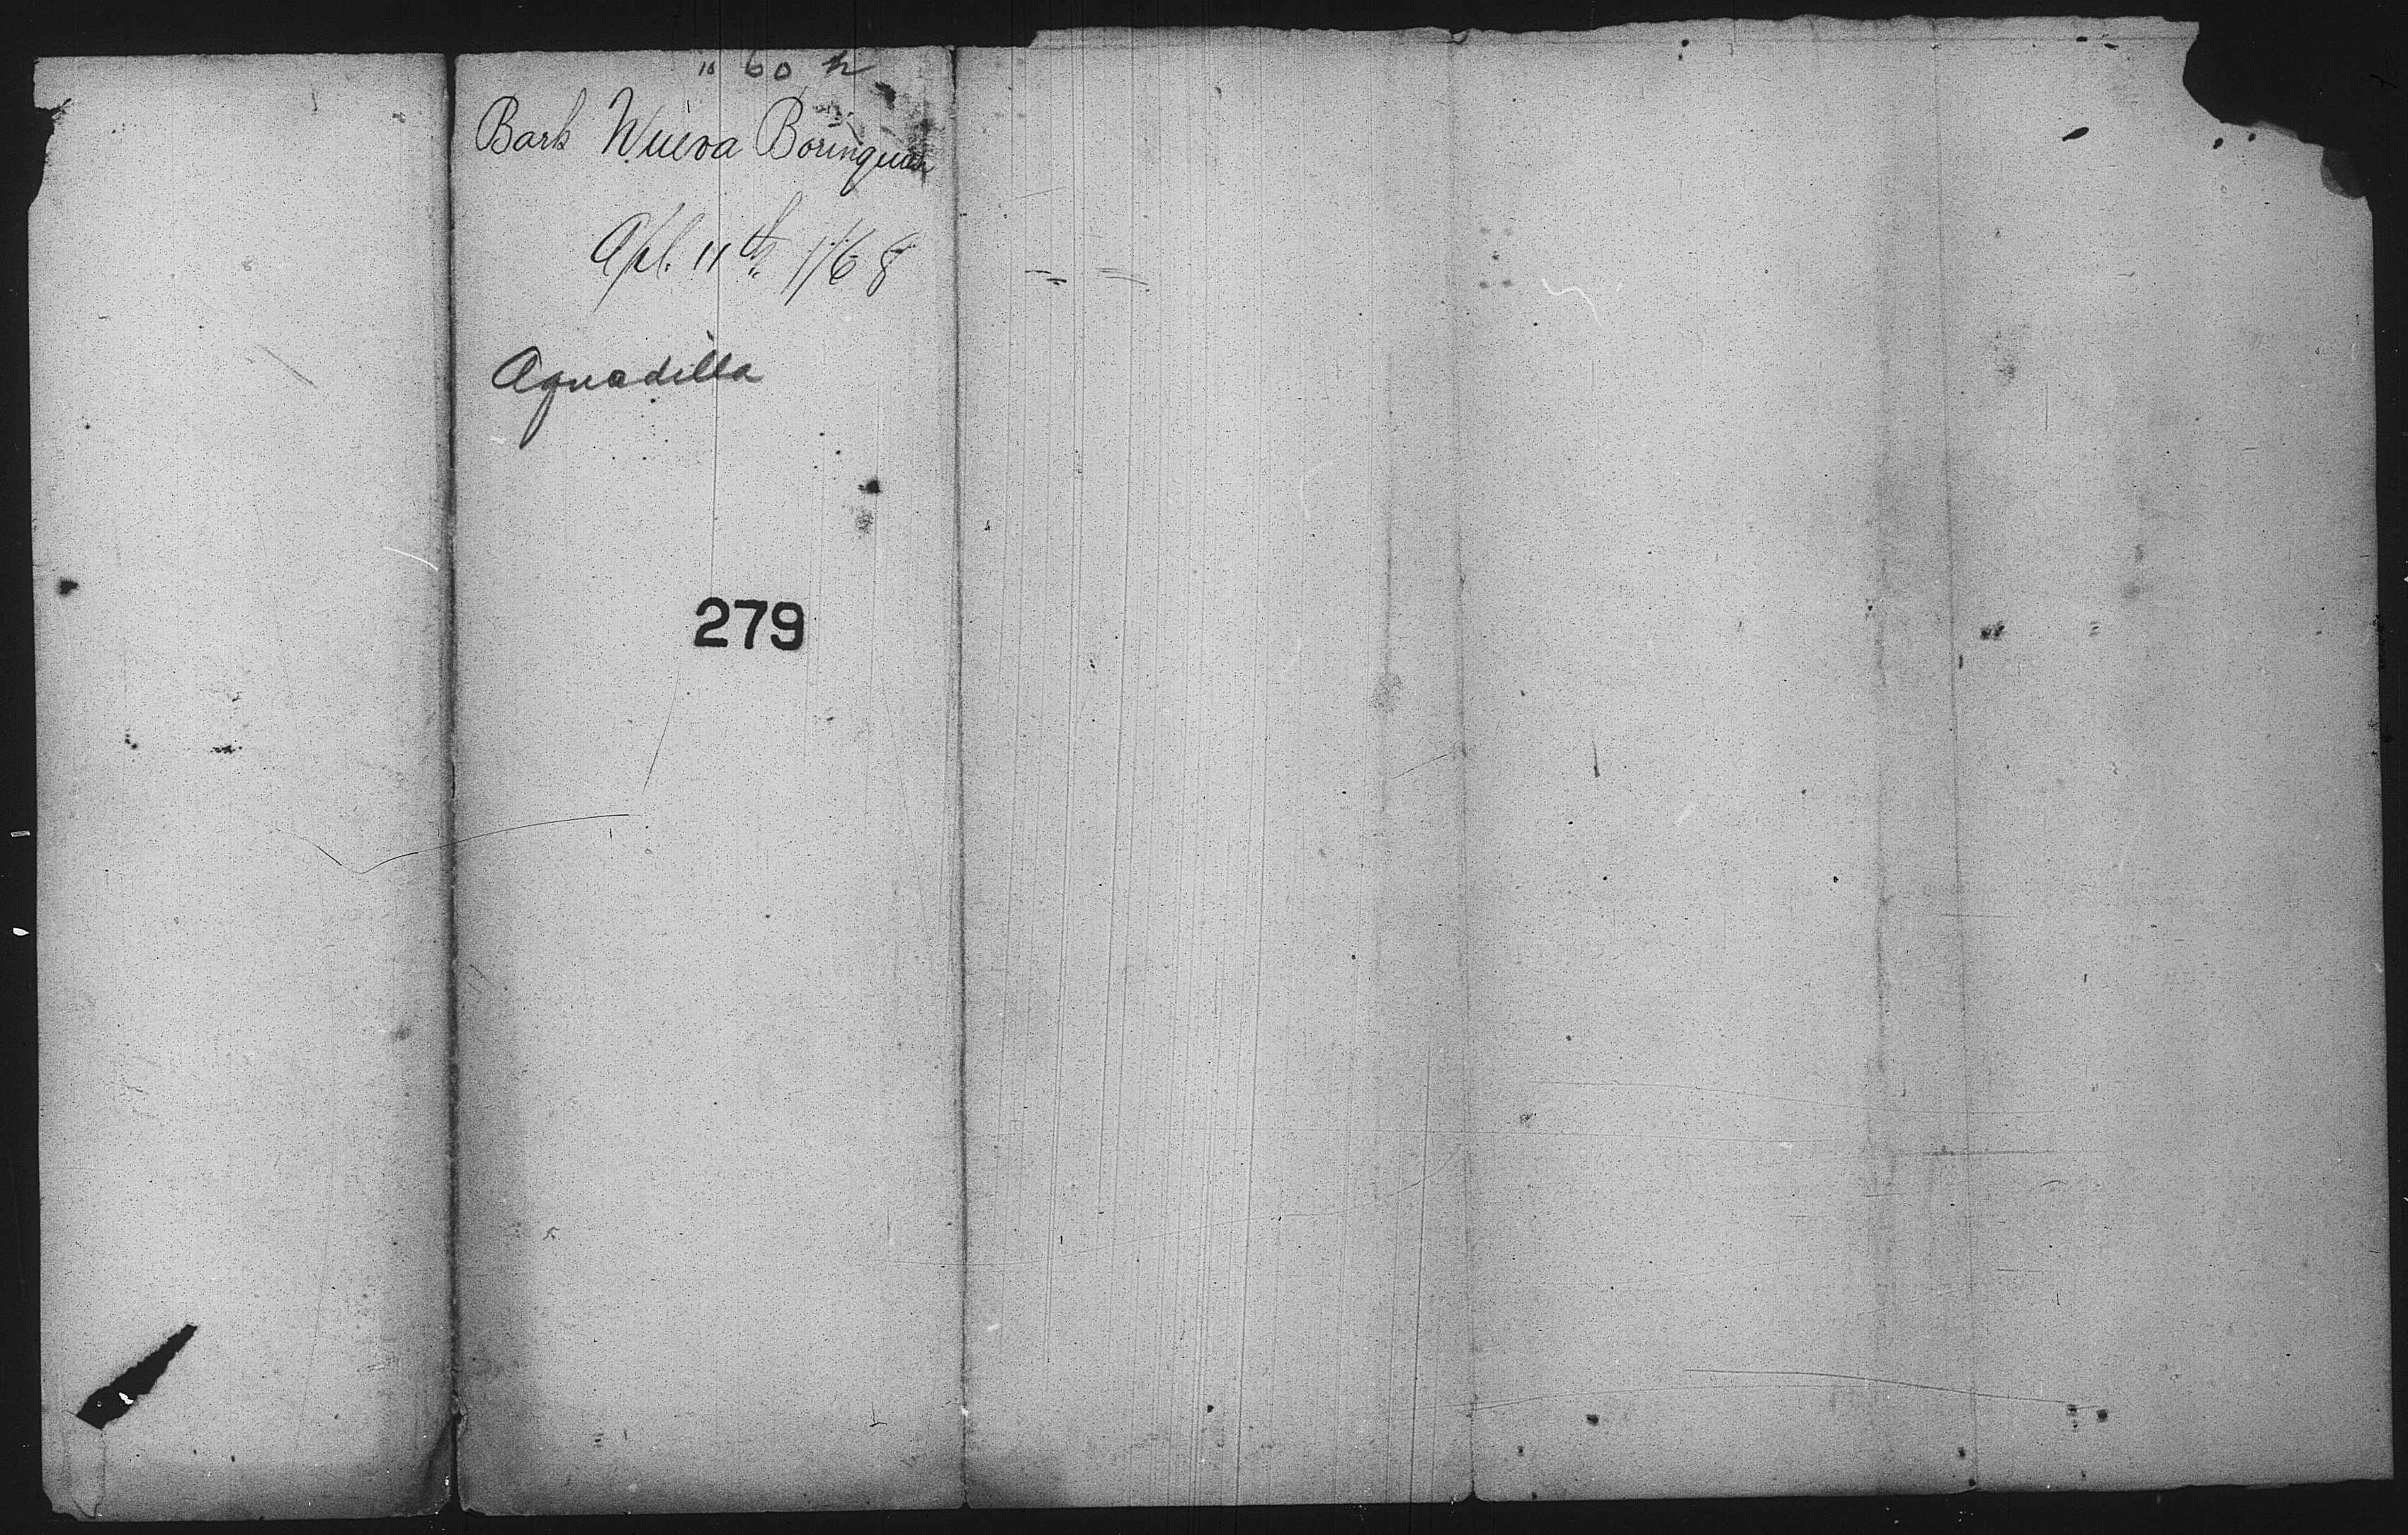 60
Bark Nueva Borinquen
Apl. 11th 1868
Aguadilla
279